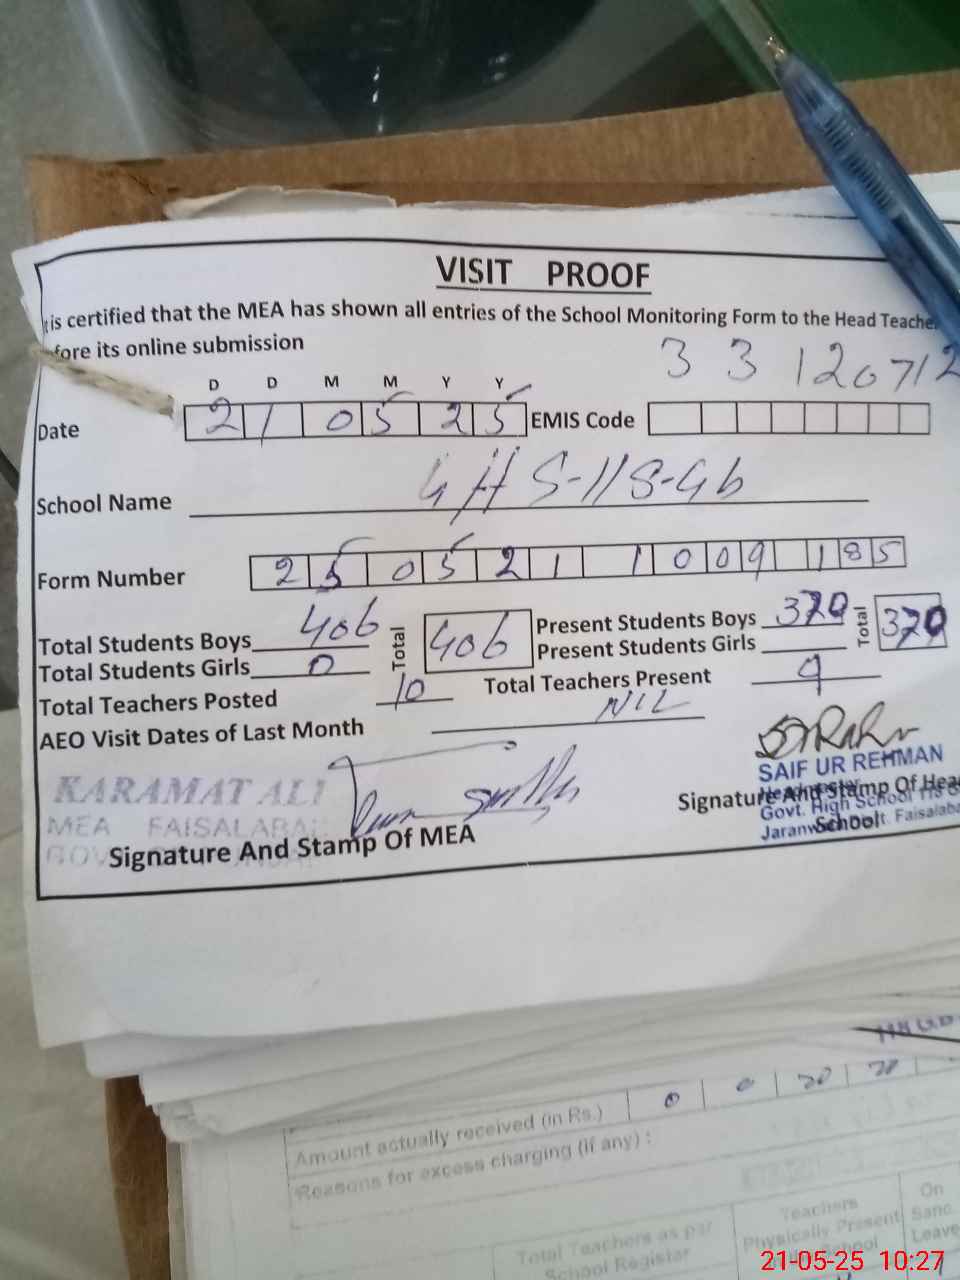 VISIT PROOF
is certified that the MEA has shown all entries of the School Monitoring Form to the Head Teache
fore its online submission
3 3 1 2 0 7 1 2
D D M M Y Y
Date 2 1 0 5 2 5 EMIS Code
School Name GHS-118-Gb
Form Number 2 5 0 5 2 1 1 0 0 9 1 8 5
Total Students Boys 406 Total 406 Present Students Boys 370 Total 370
Total Students Girls 0 Present Students Girls
Total Teachers Posted 10 Total Teachers Present 9
AEO Visit Dates of Last Month NIL
KARAMAT ALI
MEA FAISALABA
Signature And Stamp Of MEA
SAIF UR REHMAN
Headmaster
Signature And Stamp Of Hea
Govt. High School 118 G
School
Jaranwala Distt. Faisalaba
118 GB
0 0 20 20
Amount actually received (in Rs.)
Reasons for excess charging (if any) :
Total Teachers as per School Register
Teachers Physically Present in School
On Sanc. Leave
21-05-25 10:27